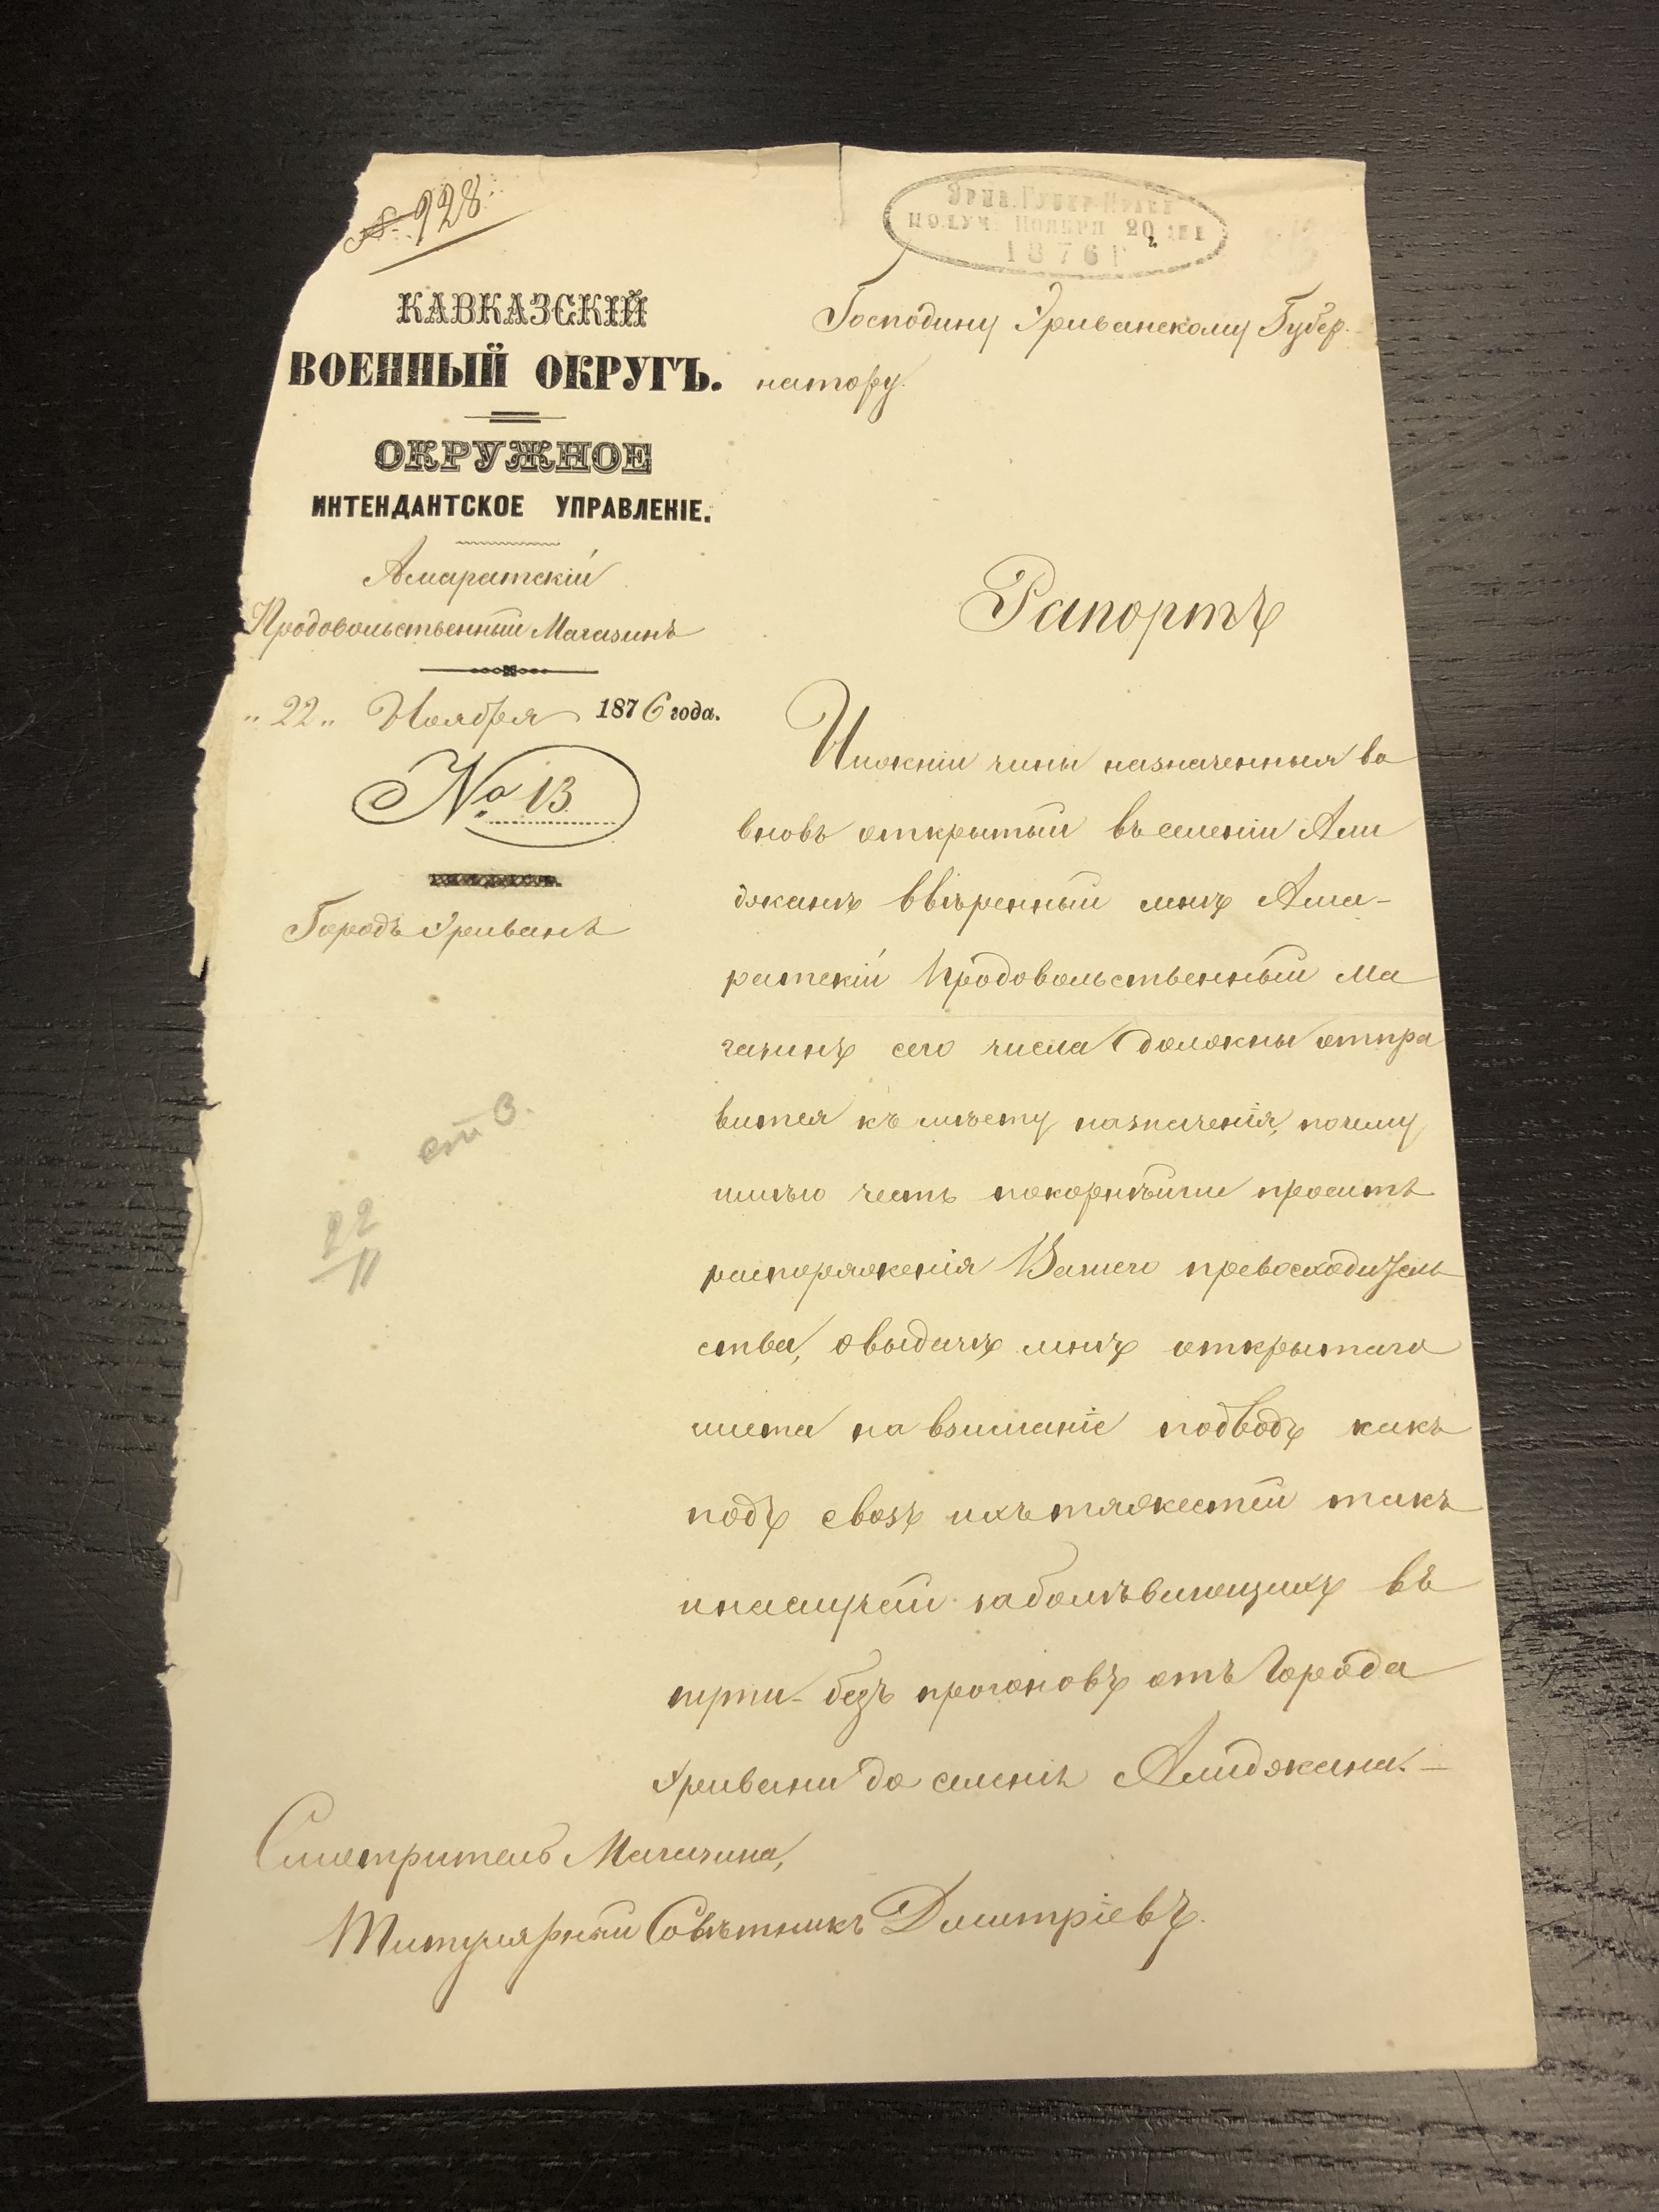 № 928.
Эрив. Губер. Правл
получ. ноября 20 дня
1876 г
КАВКАЗСКІЙ
ВОЕННЫЙ ОКРУГЪ.
ОКРУЖНОЕ
ИНТЕНДАНТСКОЕ УПРАВЛЕНІЕ.
Амаратскій
Продовольственный Магазинъ
„22„ Ноября 1876 года.
№ 13
Городъ Эривань
22
11
Господину Эриванскому Губер-
натору.
Рапортъ
Нижніи чины назначенныя во
вновь открытый въ селеніи Али
джанъ ввѣренный мнѣ Ама-
ратскій Продовольственный Ма
газинъ сего числа должны отпра
вится къ мѣсту назначенія, почему
имѣю честь покорнѣйше просить
распоряженія Вашего превосходитель
ства, о выдачѣ мнѣ открытаго
листа на взиманіе подводъ какъ
подъ свозъ ихъ тяжестей такъ
и на случай заболѣвающихъ въ
пути - безъ прогоновъ отъ Города
Эривани до селенія Алиджана. —
Смотритель Магазина,
Титулярный Совѣтникъ Дмитріевъ.